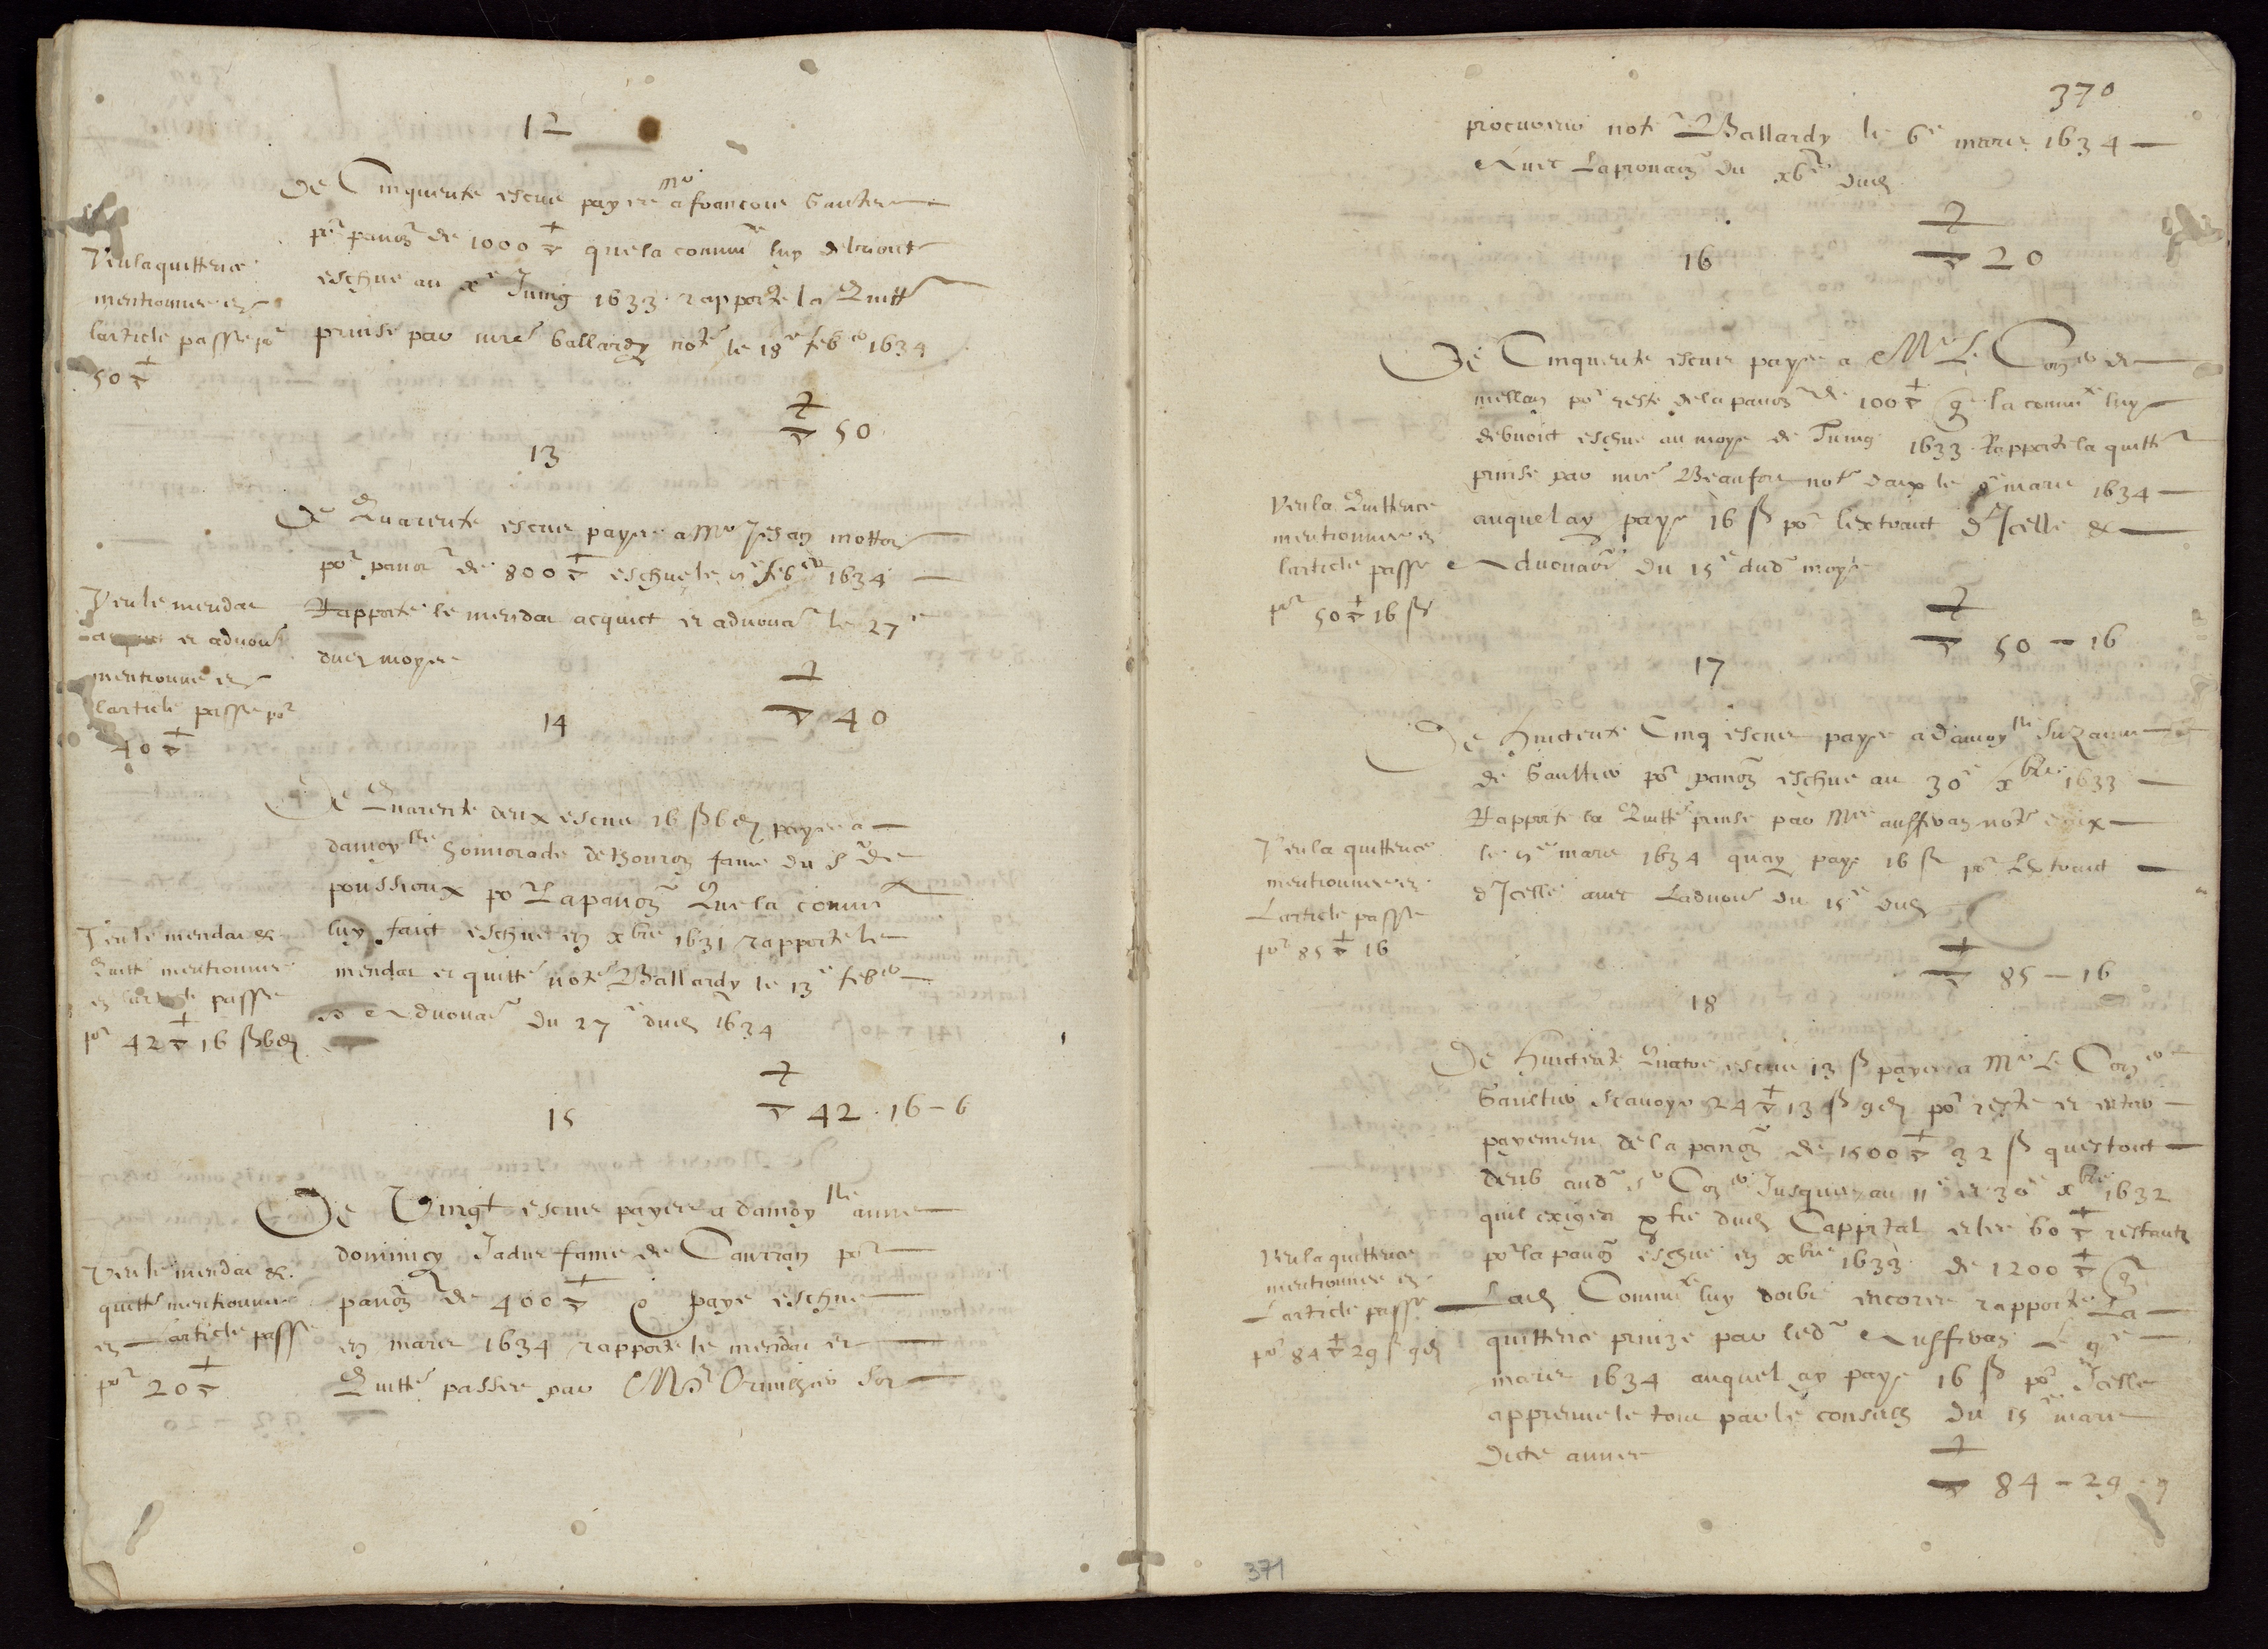 12
De Cinquente escus payes a Mr francois Gautier
pr panon de 1000 que la commte luy debuoit
escheue au xe Juing 1633 rapporte la Quitte
prinse par mre ballardy notre le 18e feber 1634
Veu la quittence
mentionnee en
larticle passe pr
50
50
13
De Quarente escus payes a Mr Jehan mottet
pr panon de 800 escheue le 9e feber 1634
Rapporte le mendat acquict et aduouar le 27e
dud moys
Veu le mendat
et aduouar
mentionne en
larticle passe pr
40
40
14
De Quarente deux escus 16 s 6 d payes a
damoylle honnorade de thoron fame du sr de
poussioux pr La panon Que la commte
luy faict escheue en xbre 1631 rapporte le
mendat et quitte notre Ballardy le 13e feber
et aduouar du 27e dud 1634
Veu le mendat &
Quitte mentionnee
en larticle passe
pr 42 16 s 6 d
42 . 16 - 6
15
De Vingt escus payes a damoylle anne
dominicy Jadis fame de Cauran pr
panon de 400 paye escheue
en mars 1634 rapporte le mendat et
Quitte passee par
Veu le mendat &
quitte mentionnee
en larticle passe
pr 20
370
notre Ballardy le 6e mars 1634
Auec du xbre dud
20
16
De Cinquente escus payes a Mr Le Coner de
mellan pr reste de la panon de 100 q la commte luy
debuoit escheue au moys de Juing 1633 Rapporte la quitte
prinse par mre Beaufort notre daix le 9e mars 1634
auquel ay paye 16 s pr lextraict dIcelle &
Aduouar du 15e dud moys
Veu la Quittence
mentionnee en
larticle passe
pr 50 16 s
50 - 16
17
De huictente Cinq escus paye a damoylle Suzanne
de Gaultier pr panon escheue au 30e xbre 1633
Rapporte la Quitte prinse par Mre auffvan notre daix
le 9e mars 1634 quay paye 16 s pr Lextraict
dIcelle auec Laduouar du 15e dud
Veu la quittence
mentionnee en
Larticle passe
pr 85 16
85 - 16
18
De huictente Quatre escus 13 s payes a Mr Le Coner
Gaultier scauoyr 24 13 s 9 d pr reste et entier
payement de la panon de 1500 32 s questoit
deub aud sr Coner Jusques au 11e et 30e xbre 1632
quil exigea ptie dud Cappital et les 60 restantz
pr la panon escheue en xbre 1633 de 1200 q
Lad Commte luy doibt encores rapporte La
quittence prinze par led Auffvan Le 9e
mars 1634 auquel ay paye 16 s pr Icelle
appreuue le tout par le conseil du 15e mars
dicte annee
Veu la quittence
mentionnee en
Larticle passe
pr 84 29 s 9 d
84 - 29 - 9
371